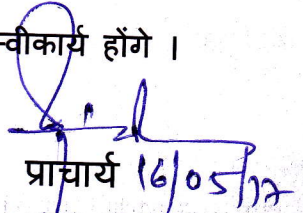 स्वीकार्य होंगे ।
प्राचार्य 16/05/17